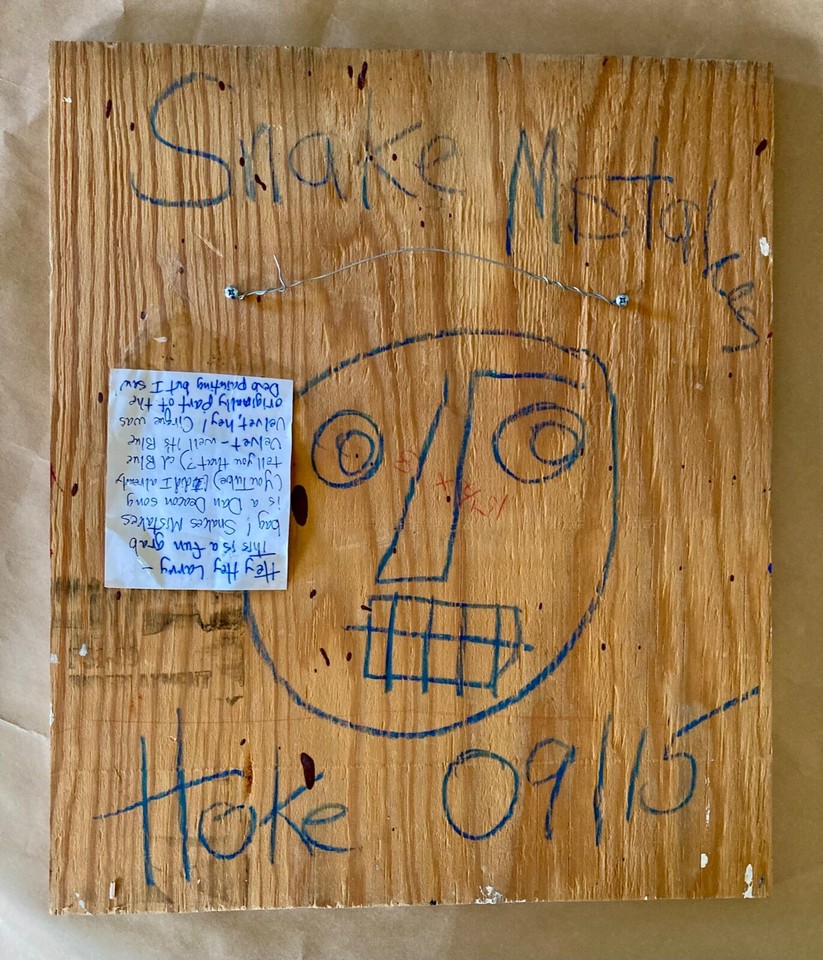 Snake Mistakes
Hey Hey Larry –
This is a fun grab
bag! Snakes Mistakes
is a Dan Deacon song
(YouTube) (did I already
tell you that?) Blue
Velvet – well its Blue
Velvet, hey! Cirque was
originally part of the
Devo painting but I
Hoke 09/15